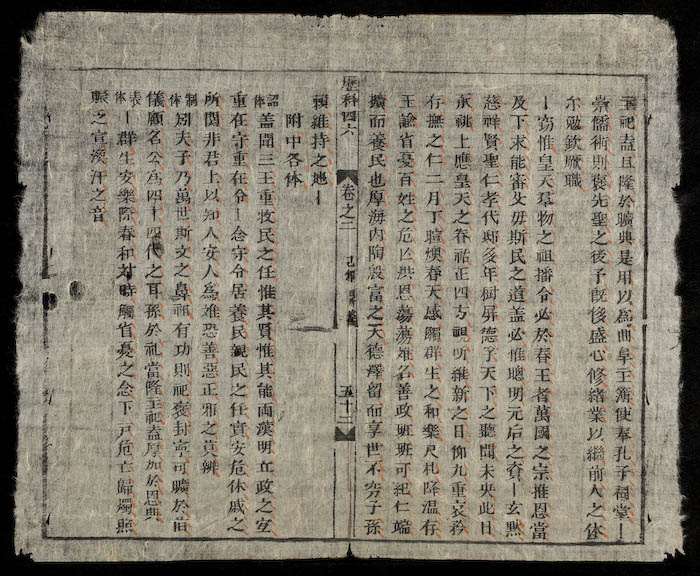 王祀盍且隆於曠典是用以爲曲阜主簿使奉孔子祠堂丨
崇儒術則褒先聖之後予旣後盛心修緒業以繼前人之休
尔勉欽厥職
丨窃惟皇天羣物之祖播令必於春王者萬國之宗推恩當
及下求能審父毋斯民之道盖必惟聰明元后之資丨玄黙
慈祥賢聖仁孝代邸多年樹屏德予天下之聽聞未央此日
承祧上應皇天之眷祐正四方視听維新之日仰九重哀矜
存撫之仁二月丁暄燠春天感觸群生之和樂尺札降温存
玉諭省憂百姓之危凶洪恩蕩蕩难名善政班班可紀仁端
擴而養民也厚海内陶殷富之天德澤留而享世不穷子孫
歷科四六 卷之二 己卯 五十二
賴維持之地丨
附中各体
詔体 盖聞三王重牧民之任惟其賢惟其能両漢明立政之宜
重在守重在令丨念守令居養民親民之任實安危休戚之
所関非君上以知人安人爲难恐善惡正邪之莫辨
制体 别夫子乃萬世斯文之鼻祖有功則祀褒封寔可曠於昔
儀顧名公爲四十四代之耳孫於祀當隆主祀盍厚加於恩典
表体 丨群生安樂際春和对時觸省憂之念下戸危亡歸燭照
賑之宣渙汗之音